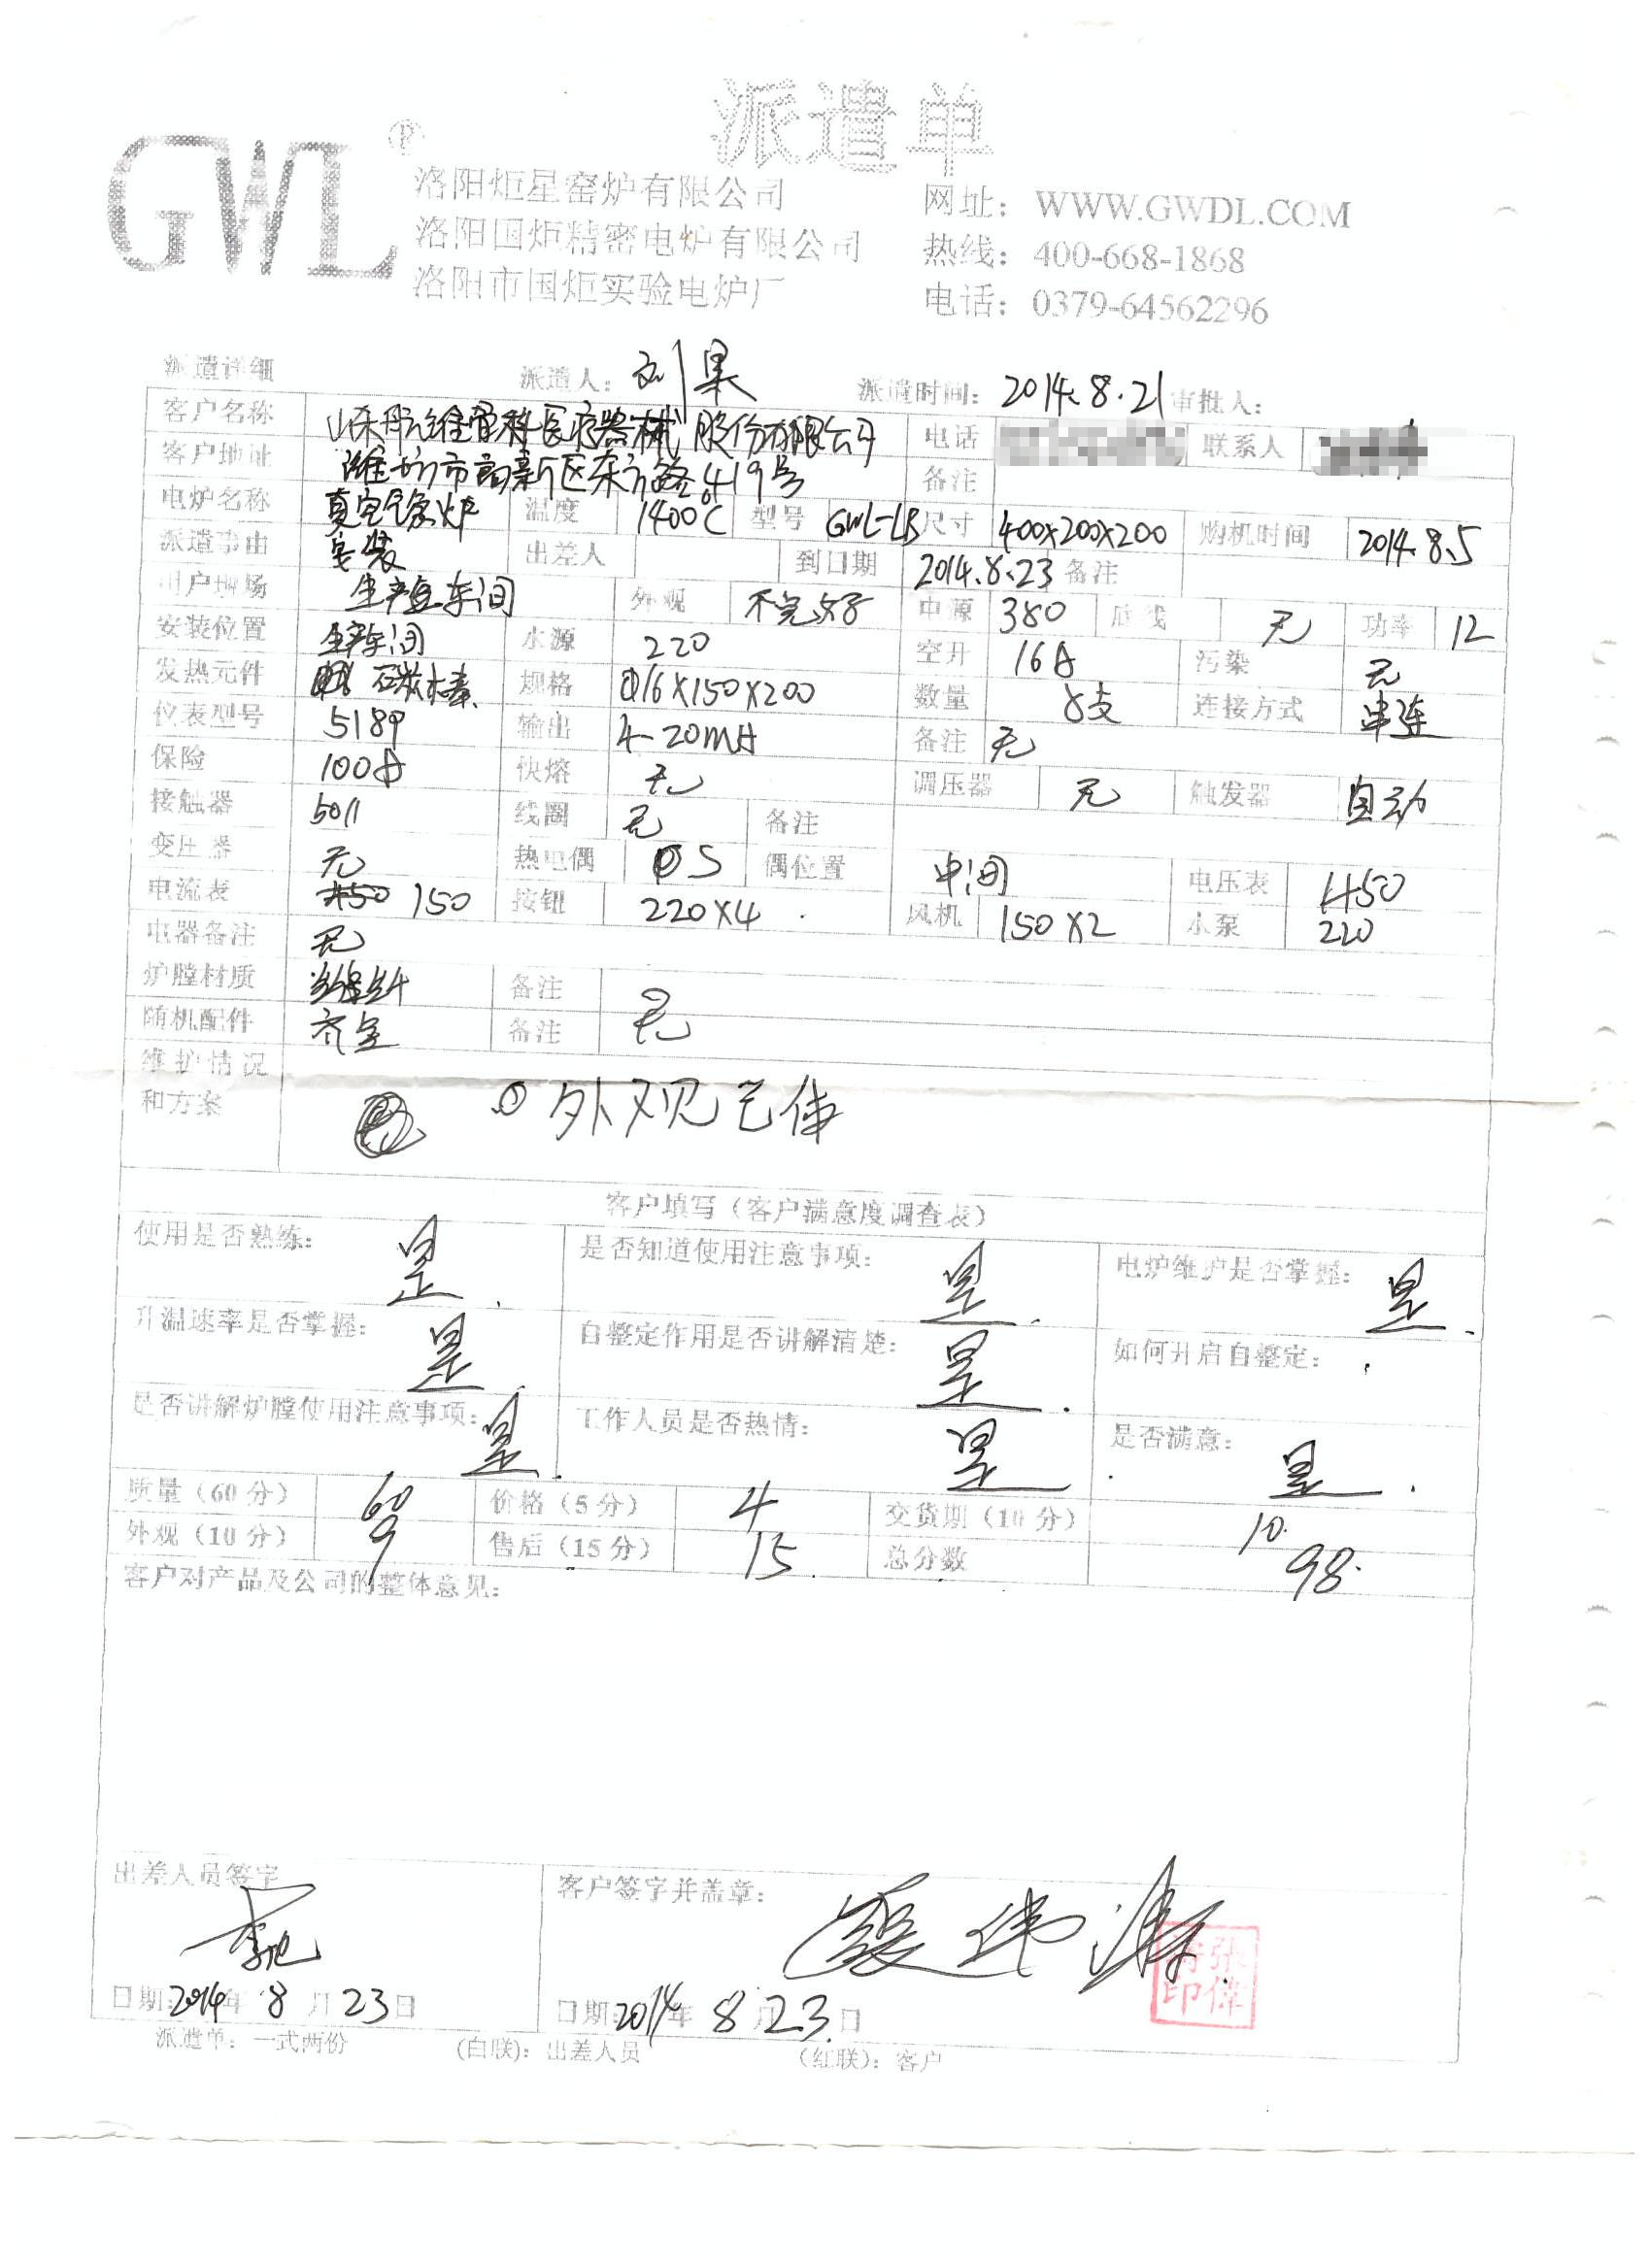 派遣单
GWL®
洛阳炬星窑炉有限公司 网址：WWW.GWDL.COM
洛阳国炬精密电炉有限公司 热线：400-668-1868
洛阳市国炬实验电炉厂 电话：0379-64562296
派遣详细 派遣人：刘果 派遣时间：2014.8.21 审批人：
客户名称 山东航维骨科医疗器械股份有限公司 电话 联系人
客户地址 潍坊市高新区东方路419号 备注
电炉名称 真空气氛炉 温度 1400℃ 型号 GWL-LB 尺寸 400x200x200 购机时间 2014.8.5
派遣事由 安装 出差人 到日期 2014.8.23 备注
用户现场 生产车间 外观 不完好 电源 380 底线 无 功率 12
安装位置 生产车间 水源 220 空开 16A 污染 无
发热元件 硅碳棒 规格 Φ16X150X200 数量 8支 连接方式 串连
仪表型号 518P 输出 4-20mA 备注 无
保险 100A 快熔 无 调压器 无 触发器 自动
接触器 5011 线圈 无 备注
变压器 无 热电偶 S 偶位置 中间 电压表 450
电流表 150 按钮 220X4 风机 150X2 水泵 220
电器备注 无
炉膛材质 备注 无
随机配件 齐全 备注 无
维护情况
和方案 ① 外观
客户填写（客户满意度调查表）
使用是否熟练：是. 是否知道使用注意事项：是. 电炉维护是否掌握：是.
升温速率是否掌握：是. 自整定作用是否讲解清楚：是. 如何开启自整定：
是否讲解炉膛使用注意事项：是. 工作人员是否热情：是. 是否满意：是.
质量（60分） 60 价格（5分） 4 交货期（10分） 10.
外观（10分） 9 售后（15分） 15. 总分数 98.
客户对产品及公司的整体意见：
出差人员签字 客户签字并盖章：
张伟印
日期：2014年8月23日 日期：2014年8月23日
派遣单：一式两份 (白联)：出差人员 （红联）：客户